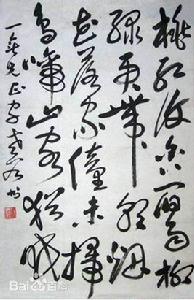 桃红復含宿雨柳
绿更带朝烟
花落家僮未掃
鸟啼山客猶眠
Bai 百科